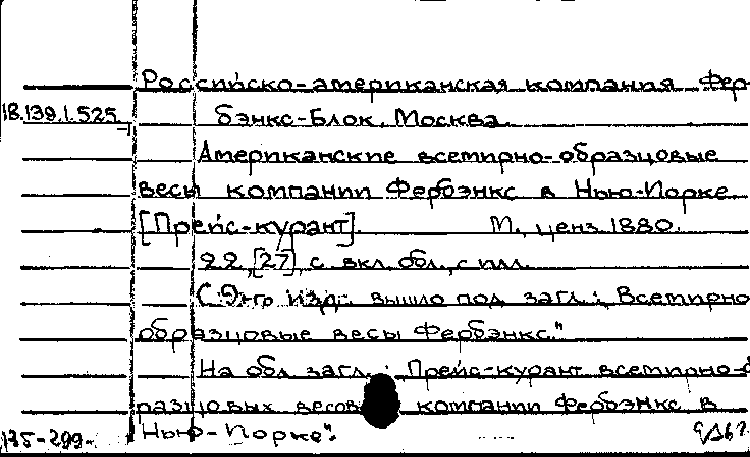 Российско-американская компания Фер-
18.139.1.525 бэнкс-Блок. Москва.
Американские всемирно-образцовые
весы компании Фербэнкс в Нью-Йорке
[Прейс-курант]. М., ценз. 1880.
22, [27] с. вкл. обл., с илл.
вышло под загл.: Всемирно
образцовые весы Фербэнкс."
На обл. загл.: Прейс-курант всемирно-об
разцовых весов компании Фербэнкс в
175-299- Нью-Йорке".